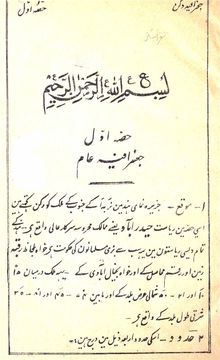 جغرافیہ دکن حصّہ اوّل
بسم اللہ الرحمن الرحیم
حصّہ اوّل
جغرافیہ عام
۱۔ موقع۔ جزیرہ نمائے ہند میں قریباً کے جنوب کے ملک کو دکن کہتے ہیں
اسی حصہ میں ریاست حیدرآباد یعنے ممالک محروسہ سرکار عالی واقع ہے۔
تمام دیسی ریاستوں میں یہ سب سے بڑی مسلمانوں کی حکومت ہے خواہ بلحاظ رقبہ
زمین اور قسم محاصل کے اور خواہ بلحاظ آبادی کے۔ یہ ملک درمیان
اور شمالی عرض بلد کے اور مابین اور
شرقی طول بلد کے واقع ہے۔
۲۔ حدود۔ اسکی حدود اربعہ ذیل میں درج ہیں:۔